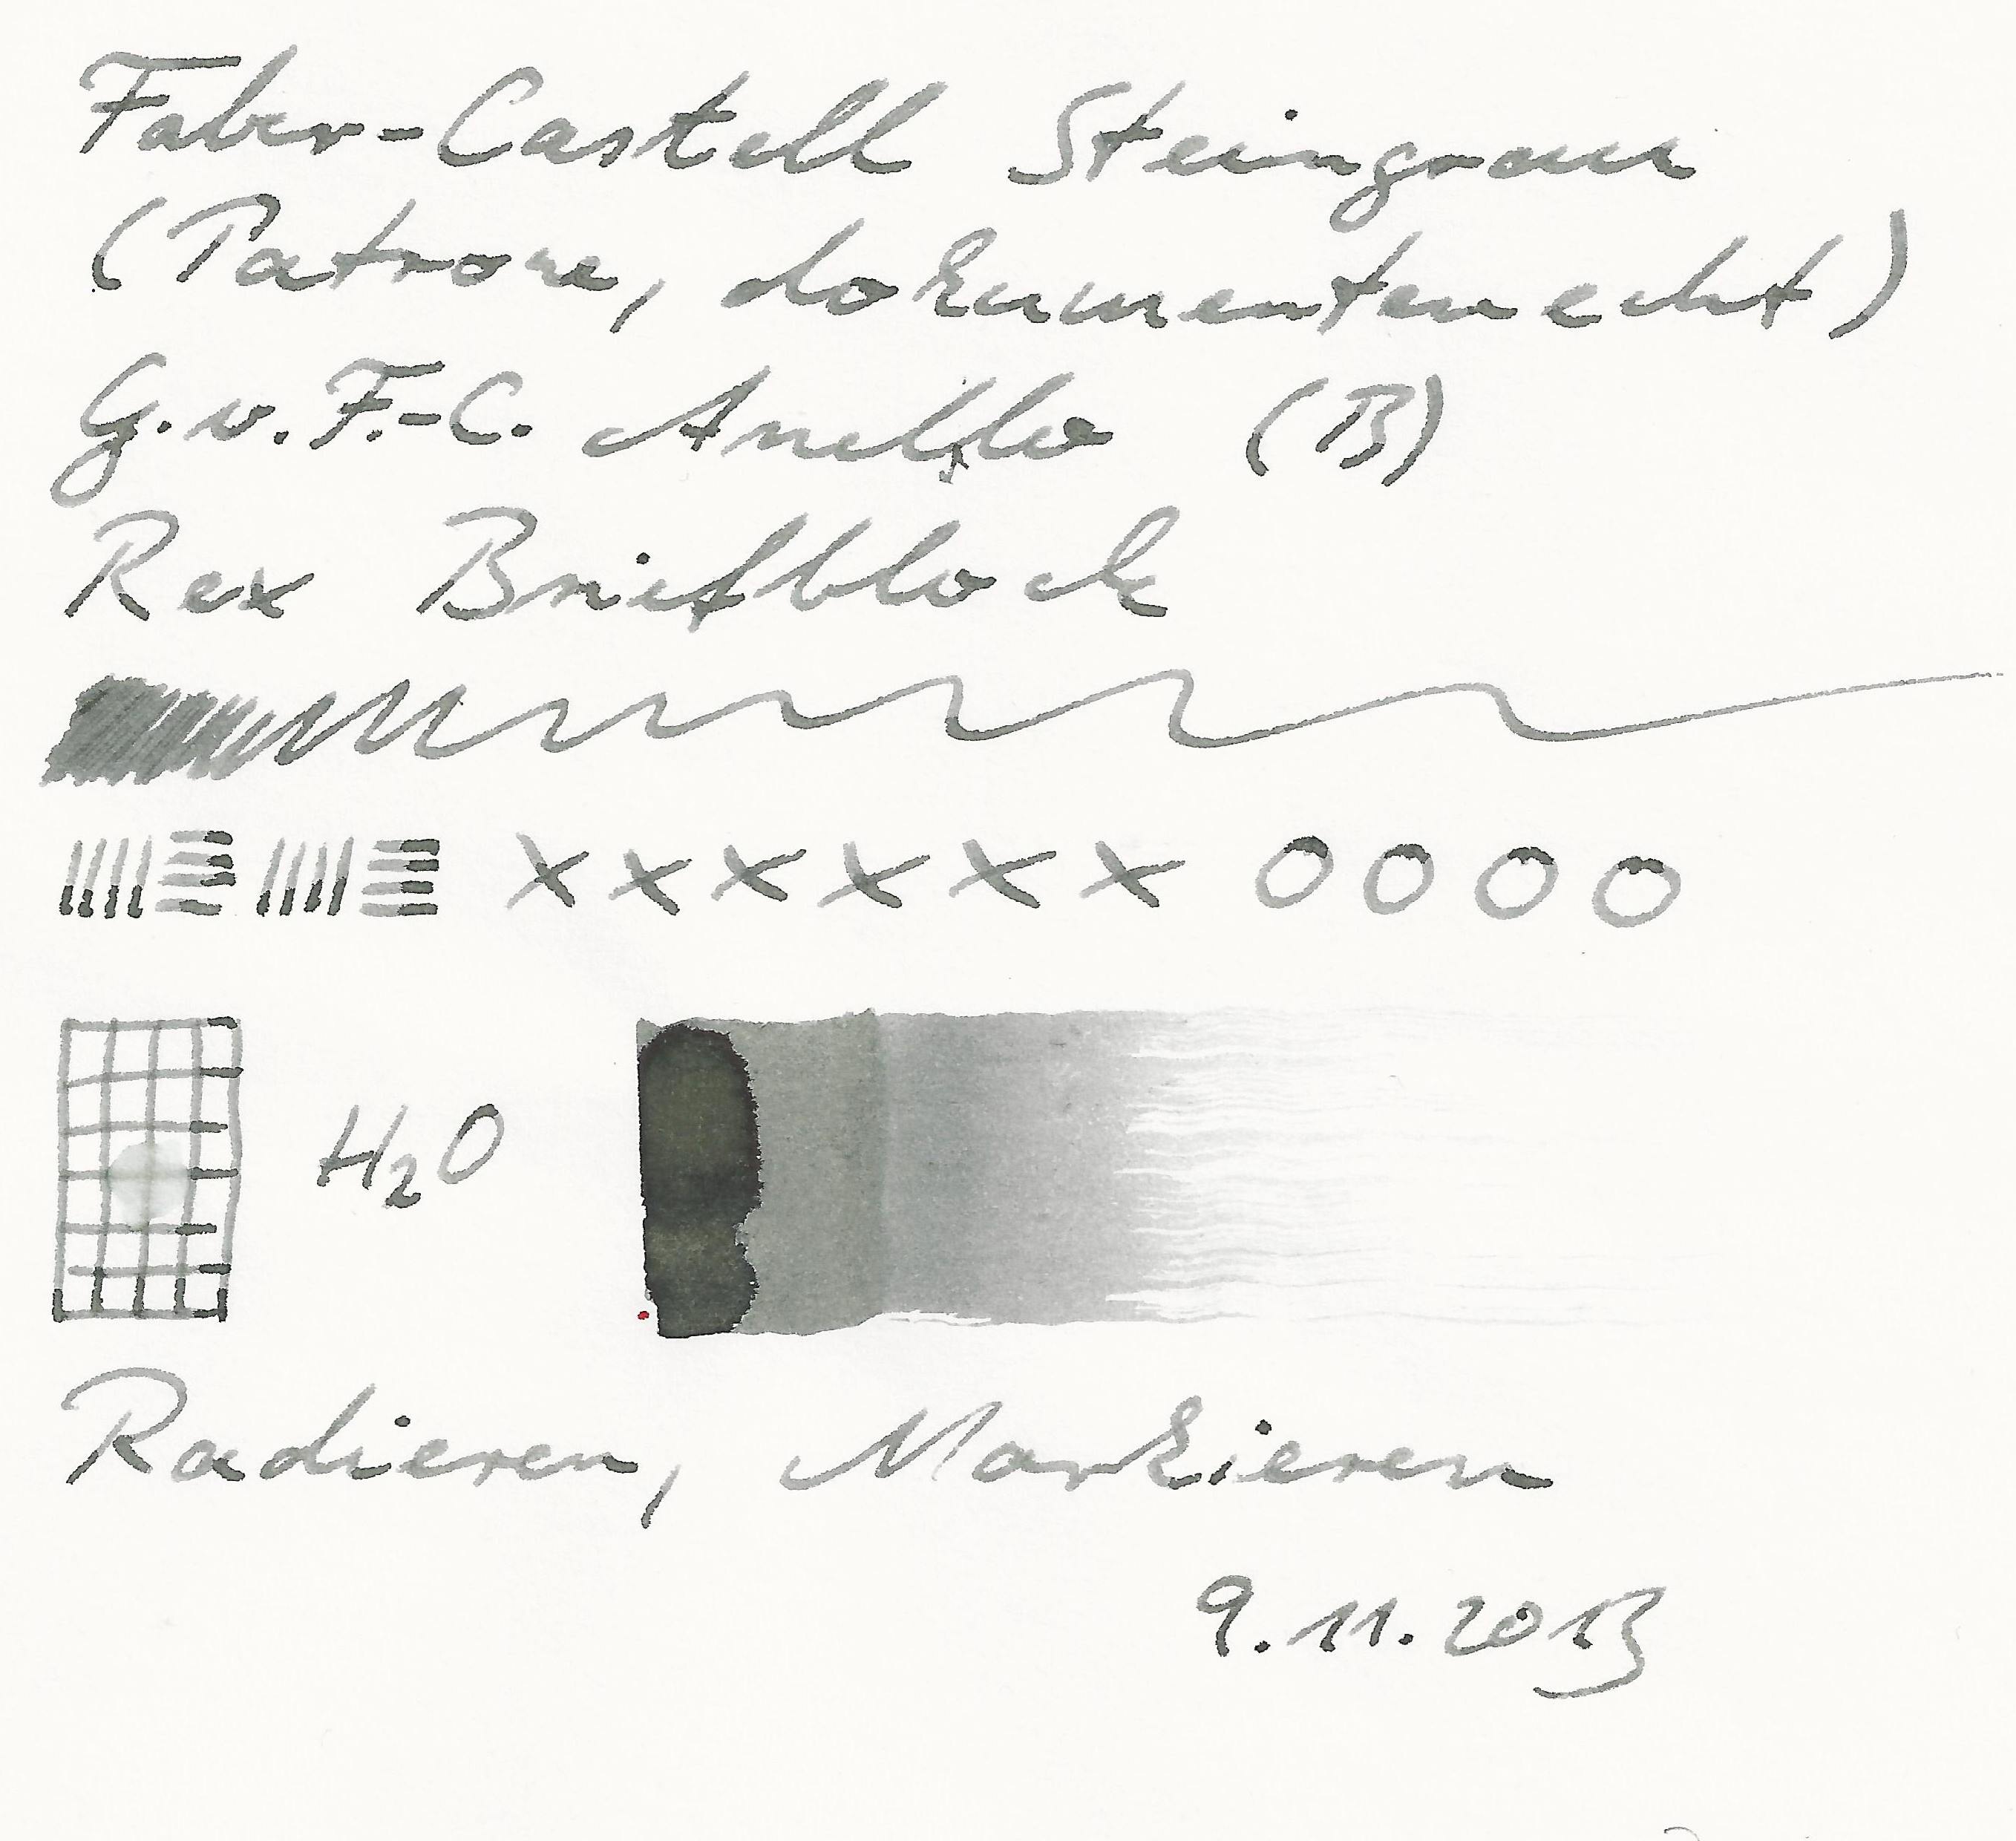 Faber-Castell Steingrau
(Patrone, dokumentenecht)
G.v.F.-C. Anello (B)
Rex Briefblock
xxxxxx OOOO
H₂O
Radieren, Markieren
9.11.2013